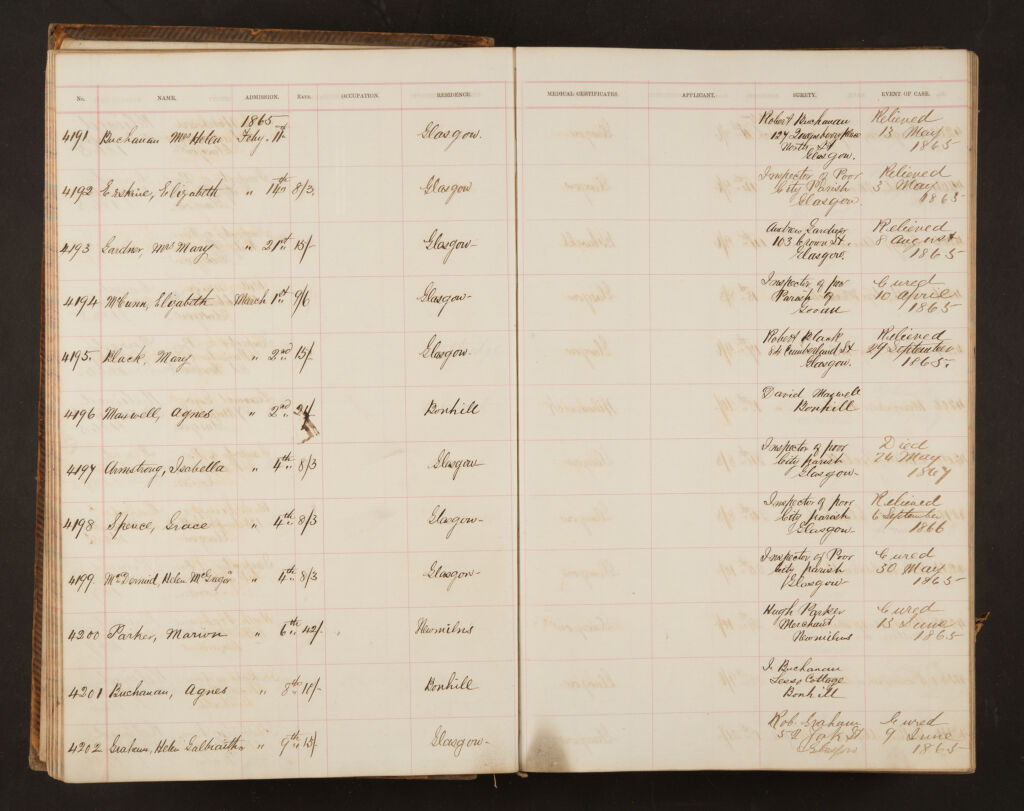 No. NAME. ADMISSION. RATE. OCCUPATION. RESIDENCE. MEDICAL CERTIFICATES. APPLICANT. SURETY. EVENT OF CASE.
1865
4191 Buchanan Mrs Helen Feby. 11th Glasgow. Robert Buchanan Relieved
127 13 May
North St 1865
Glasgow.
4192 Erskine, Elizabeth " 14th 8/3. Glasgow Inspector of Poor Relieved
City Parish 3 May
Glasgow. 1865
4193 Gardner, Mrs Mary " 21st 15/- Glasgow- Andrew Gardner Relieved
103 Crown St. 8 August
Glasgow. 1865
4194 McCunn, Elizabeth March 1st 9/6 Glasgow- Inspector of poor Cured
Parish of 10 April
Govan 1865
4195. Black, Mary " 2nd 15/- Glasgow- Robert Black Relieved
84 Cumberland St 29 September
Glasgow. 1865.
4196 Maxwell, Agnes " 2nd 21/ Bonhill David Maxwell
Bonhill
4197 Armstrong, Isabella " 4th 8/3 Glasgow Inspector of poor Died
City parish 24 May
Glasgow- 1867
4198 Spence, Grace " 4th 8/3 Glasgow- Inspector of poor Relieved
City parish 6 September
Glasgow- 1866
4199 McDermid, Helen McGregor " 4th 8/3 Glasgow- Inspector of Poor Cured
City parish 30 May
Glasgow- 1865
4200 Parker, Marion " 6th 42/- Newmilns Hugh Parker Cured
Merchant 13 June
Newmilns 1865
4201 Buchanan, Agnes " 8th Bonhill Buchanan
Cottage
Bonhill
4202 Graham, Helen Galbraith " 9th 15/- Glasgow- Rob. Graham Cured
York St 9 June
1865